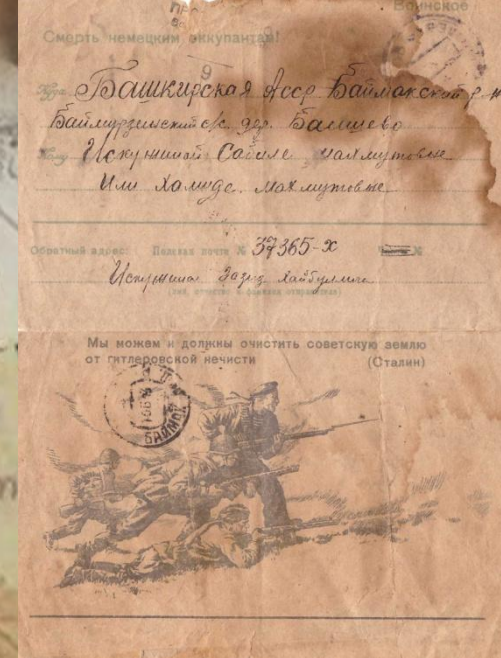 Воинское
Смерть немецким оккупантам!
9
Куда Башкирская Асср Баймакский р-н
Баймурзинский с/с. дер. Баишево
Кому Искужиной Сабиле махмутовне
Или Хамиде. махмутовне
Обратный адрес: Полевая почта № 37365-х
Искужина Зазид Хайбуллича
(имя, отчество и фамилия отправителя)
Мы можем и должны очистить советскую землю
от гитлеровской нечисти (Сталин)
БАЙМАК